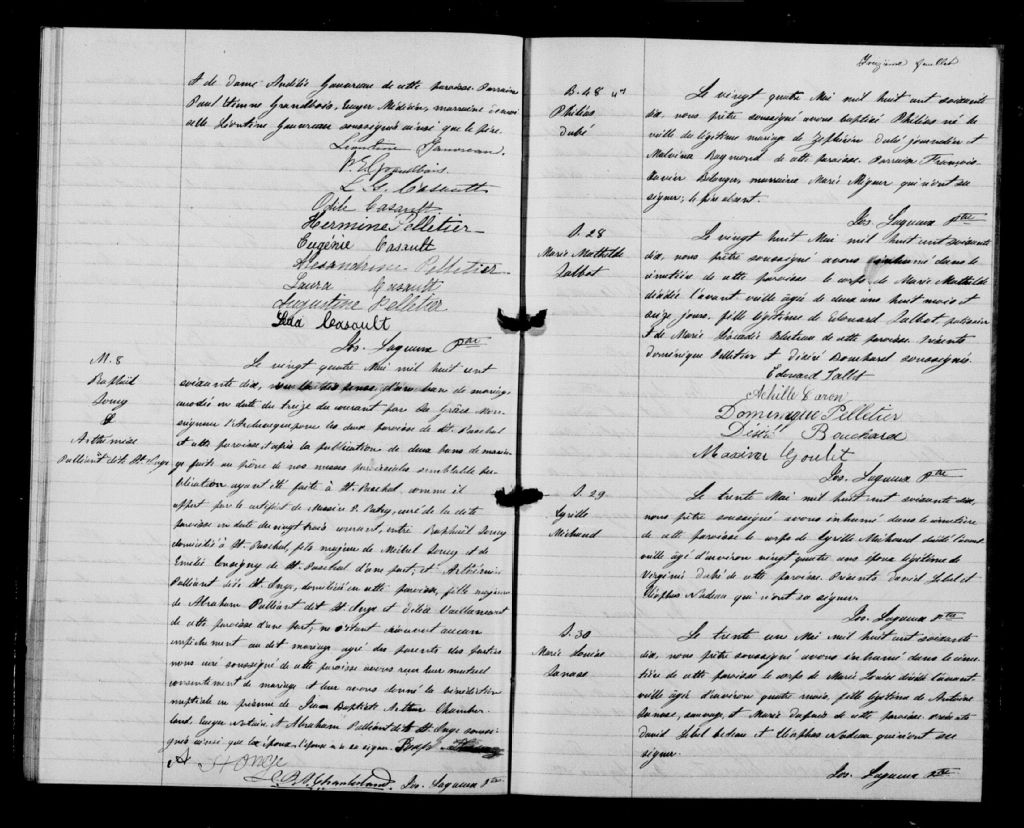 et de dame Andélie Gauvreau de cette paroisse. Parrain
Paul Etienne Grandbois, Ecuyer Médecin, marraine
elle Léontine Gauvreau soussignés ainsi que le père.
Léontine Gauvreau.
P. E. Grandbois
L. G. Casault
Odile Casault
Hermine Pelletier
Eugénie Casault
Alexandrine Pelletier
Laura Casault
Augustine Pelletier
Léda Casault
Jos. Lagueux Ptre
M. 8
Raphaël
Soucy
&
Arthémise
Pelliant dite St. Onge
Le vingt quatre Mai mil huit cent
soixante dix, vu la dispense d'un ban de mariage
accordée en date du treize du courant par Sa Grâce Mon-
seigneur l'Archevêque pour les deux paroisses de St. Paschal
et cette paroisse, après la publication de deux bans de maria-
ge faite au prône de nos messes paroissiales semblable pu-
blication ayant été faite à St. Paschal comme il
appert par le certificat de Messire P. Patry, curé de la dite
paroisse en date du vingt trois courant, entre Raphaël Soucy
domicilié à St. Paschal, fils majeur de Michel Soucy et de
Emélie de St. Paschal d'une part; et Arthémise
Pelliant dite St. Onge, domiciliée en cette paroisse, fille majeure
de Abraham Pelliant dit St. Onge et Délia Vaillancourt
de cette paroisse d'une part; ne s'étant découvert aucun
empêchement au dit mariage agré des parents des parties
nous curé soussigné de cette paroisse avons reçu leur mutuel
consentement de mariage et leur avons donné la bénédiction
nuptiale en présence de Jean Baptiste Arthur Chamber-
land, Ecuyer notaire et Abraham Pelliant dit St. Onge soussi-
gnés ainsi que l'époux, l'épouse n'a su signer.
A St Onge
J. B. A. Chamberland Jos. Lagueux Ptre
Onzième feuillet
B. 48
Philéas
Dubé
Le vingt quatre Mai mil huit cent soixante
dix, nous prêtre soussigné avons baptisé Philéas né de
veille du légitime mariage de Zéphirin Dubé journalier et
Malvina Raymond de cette paroisse. Parrain François
Xavier Bélanger, marraine Marie Migner qui n'ont su
signer; le père absent.
Jos. Lagueux Ptre
S. 28
Marie Mathilde
Talbot
Le vingt huit Mai mil huit cent soixante
dix, nous prêtre soussigné avons inhumé dans le
cimetière de cette paroisse le corps de Marie Mathilde
décédée l'avant veille âgée de deux ans huit mois et
seize jours, fille légitime de Edouard Talbot, patissier
et de Marie Léocadie Bilodeau de cette paroisse. Présents
Dominique Pelletier et Désiré Bouchard soussignés.
Edouard Talbot
Achille Caron
Dominique Pelletier
Désiré Bouchard
Maxime Goulet
Jos. Lagueux Ptre
S. 29
Cyrille
Michaud
Le trente Mai mil huit cent soixante dix,
nous prêtre soussigné avons inhumé dans le cimetière
de cette paroisse le corps de Cyrille Michaud décédé l'avant
veille âgé d'environ vingt quatre ans époux légitime de
Virginie Dubé de cette paroisse. Présents David Lebel et
Cléophas Nadeau qui n'ont su signer.
Jos. Lagueux Ptre
S. 30
Marie Louise
Lanass
Le trente un Mai mil huit cent soixante
dix, nous prêtre soussigné avons inhumé dans le cime-
tière de cette paroisse le corps de Marie Louise décédée l'avant
veille âgée d'environ quatre mois, fille légitime de Antoine
Lanass, sauvage, et Marie Dupuis de cette paroisse. Présents
David Lebel bedeau et Cléophas Nadeau qui n'ont su
signer.
Jos. Lagueux Ptre